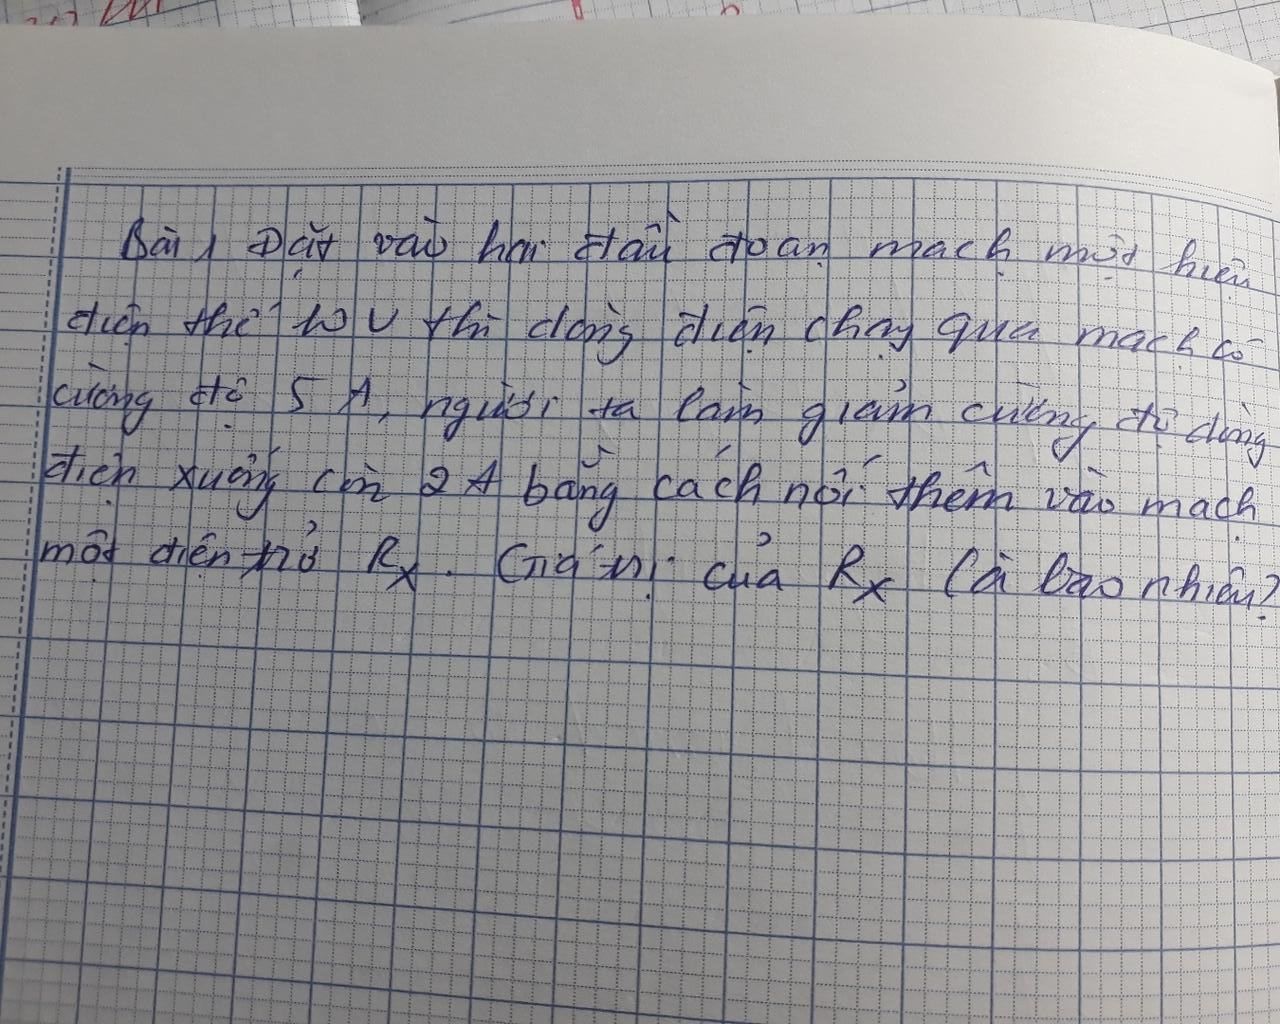 Bài 1 Đặt vào hai đầu đoạn mạch một hiệu
điện thế 10 V thì dòng điện chạy qua mạch có
cường độ 5 A, người ta làm giảm cường độ dòng
điện xuống còn 2 A bằng cách nối thêm vào mạch
một điện trở Rx. Giá trị của Rx là bao nhiêu?